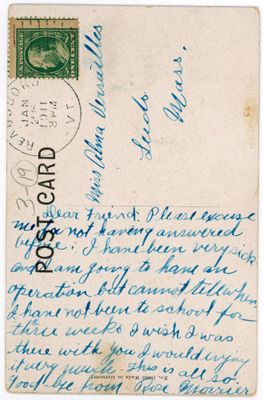 ONE CENT
READSBORO
JAN
1911
3 PM
VT.
POST CARD
3-(19)
Miss Alma Versailles
Luds
Mass.
Dear Friend: Please excuse
me for not having answered
before. I have been very sick
and am going to have an
operation but cannot tell when.
I have not been to school for
three weeks I wish I was
there with you I would enjoy
it very much. This is all so
good-bye from Rose
Made in Germany